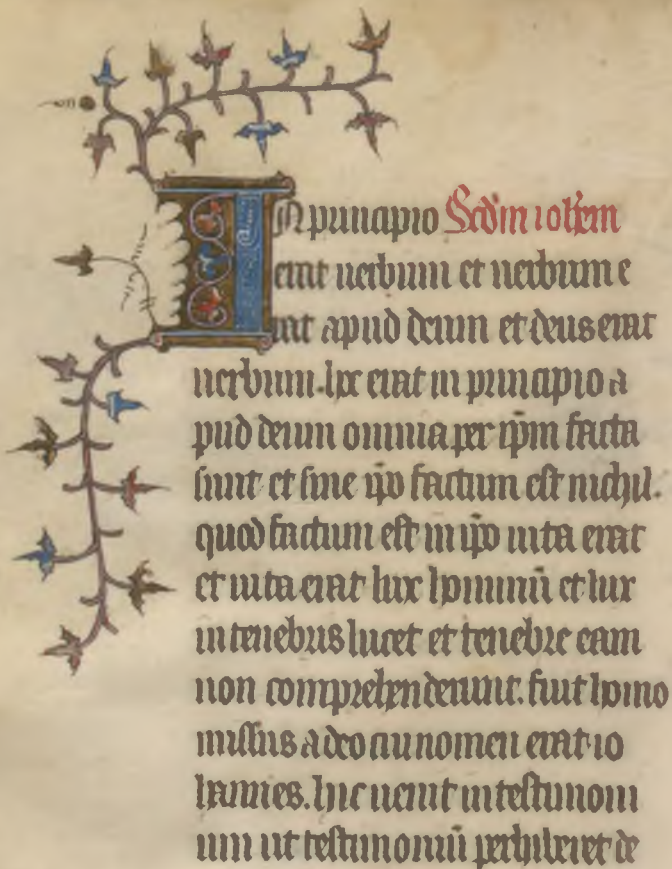 In principio Scd'm ioh'em
erat uerbum et uerbum e
rat apud deum et deus erat
uerbum. hoc erat in principio a
pud deum omnia per ip̅m facta
sunt et sine ip̅o factum est nichil.
quod factum est in ip̅o uita erat
et uita erat lux hominu̅ et lux
in tenebris lucet et tenebre eam
non comprehenderunt. fuit homo
missus a deo cui nomen erat io
hannes. hic uenit in testimoni
um ut testimoniu̅ perhiberet de